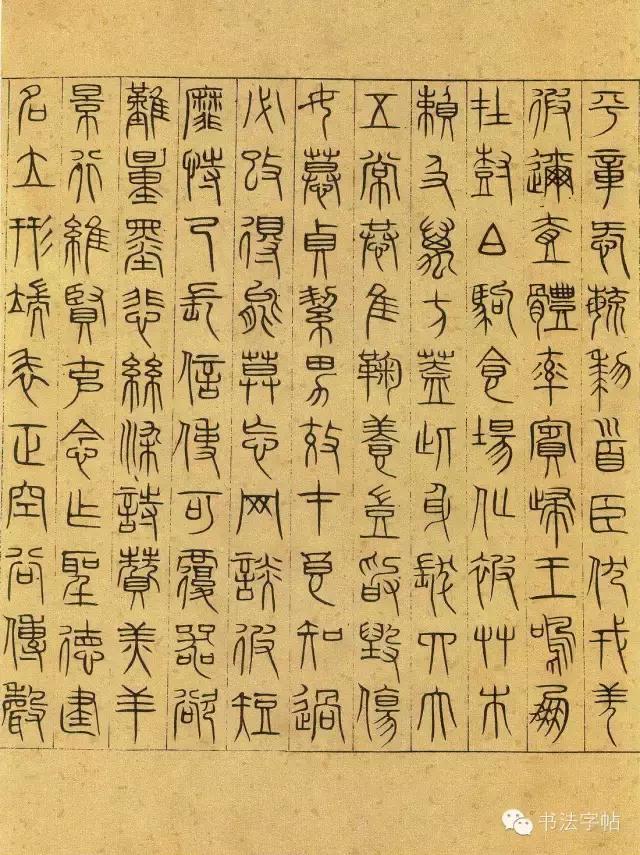 平章㤅毓黎首臣伏戎羌
徦邇壹體率賓歸王鳴鳳
在尌白駒食場化被艸木
賴及萬方蓋此身髮四大
五常恭隹鞠養豈敢毀傷
女慕貞絜男效才良知過
必改得能莫忘网談彼短
靡恃己長信使可覆器欲
難量墨悲絲染詩贊羔羊
景行維賢克念作聖德建
名立形端表正空谷傳聲
书法字帖